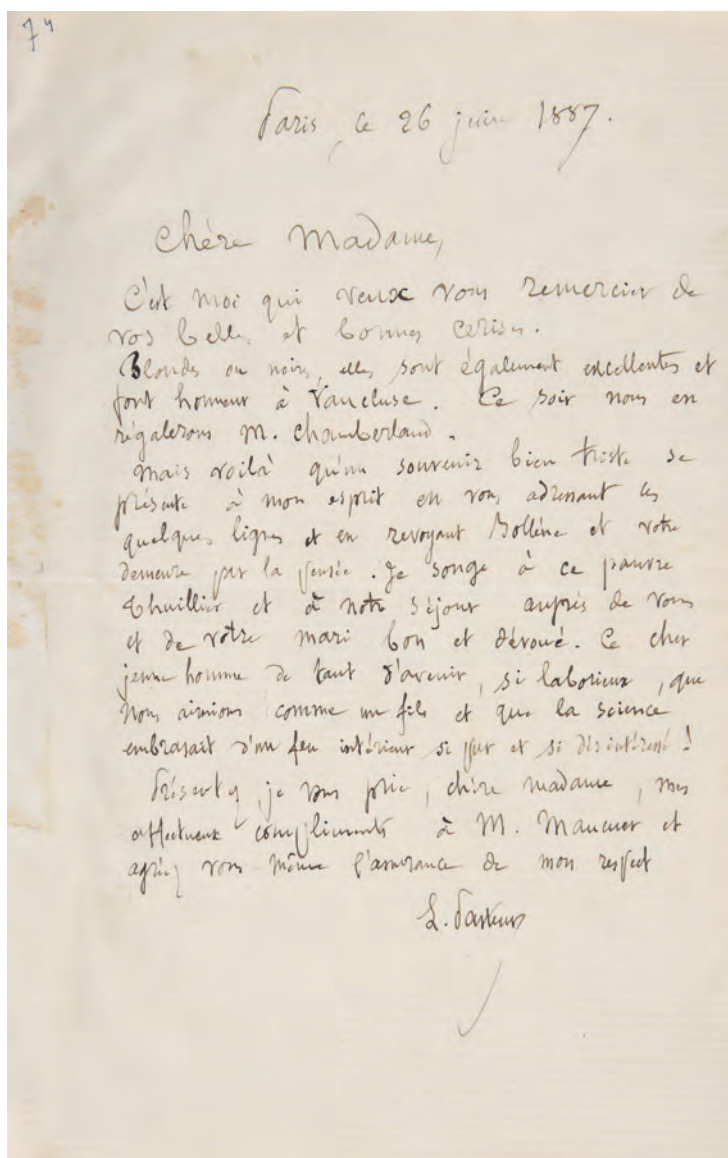 74
Paris, ce 26 juin 1887.
Chère Madame,
C'est moi qui veux vous remercier de
vos belles et bonnes cerises.
Blondes ou noires, elles sont également excellentes et
font honneur à Vaucluse. Ce soir nous en
régalerons M. Chamberland.
Mais voilà qu'un souvenir bien triste se
présente à mon esprit en vous adressant ces
quelques lignes et en revoyant Bollène et votre
demeure par la pensée. Je songe à ce pauvre
Thuillier et à notre séjour auprès de vous
et de votre mari bon et dévoué. Ce cher
jeune homme de tant d'avenir, si laborieux, que
nous aimions comme un fils et que la science
embrasait d'un feu intérieur si pur et si désintéressé !
Présentez, je vous prie, chère madame, mes
affectueux compliments à M. Maucuer et
agréez vous même l'assurance de mon respect
L. Pasteur